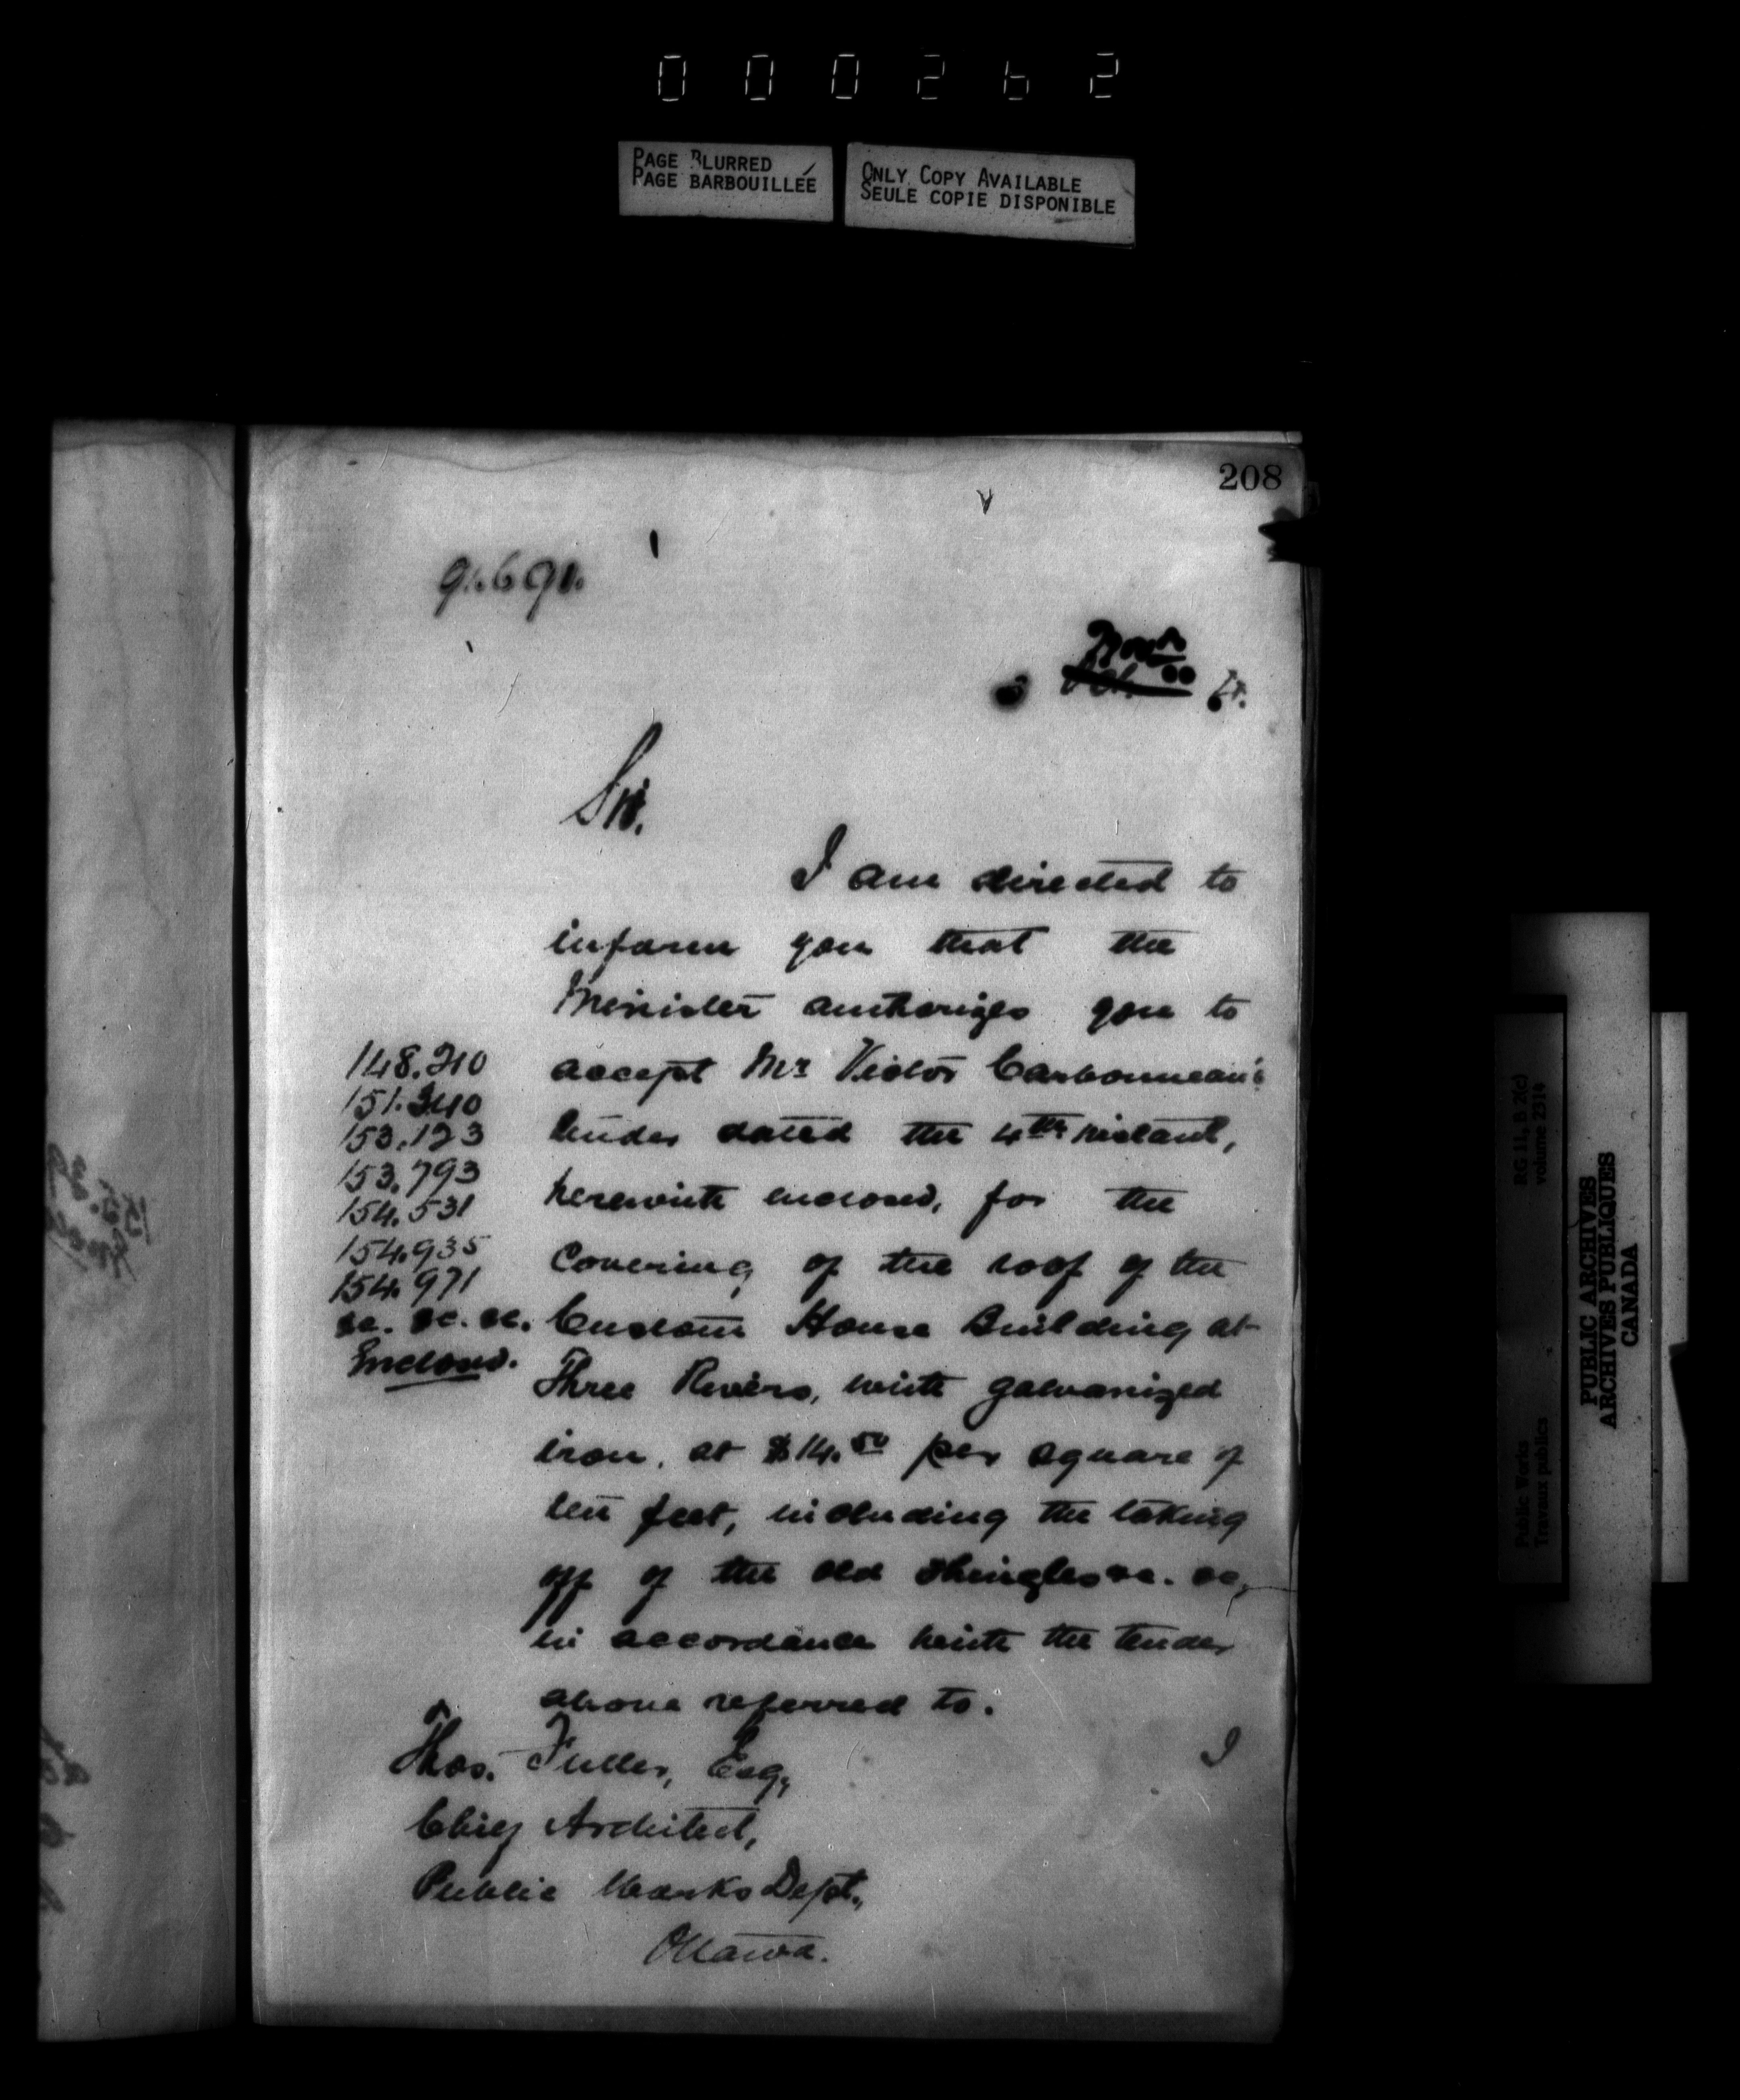 000262
PAGE BLURRED
PAGE BARBOUILLÉE
ONLY COPY AVAILABLE
SEULE COPIE DISPONIBLE
208
Sir.
I am directed to
inform you that the
Minister authorizes you to
accept Mr Victor Carbonneau's
tender dated the 4th instant,
herewith enclosed, for the
covering of the roof of the
Custom House Building at
Three Rivers, with galvanized
iron, at $14.50 per square of
ten feet, including the taking
off of the old shingles &c. &c,
in accordance with the tender
above referred to.
I
148.210
151.340
153.123
153.793
154.531
154.935
154.971
&c. &c. &c.
Enclosd.
Thos. Fuller, Esq,
Chief Architect,
Public Works Dept.,
Ottawa.
RG 11, B 2(c)
volume 2914
Public Works
Travaux publics
PUBLIC ARCHIVES
ARCHIVES PUBLIQUES
CANADA